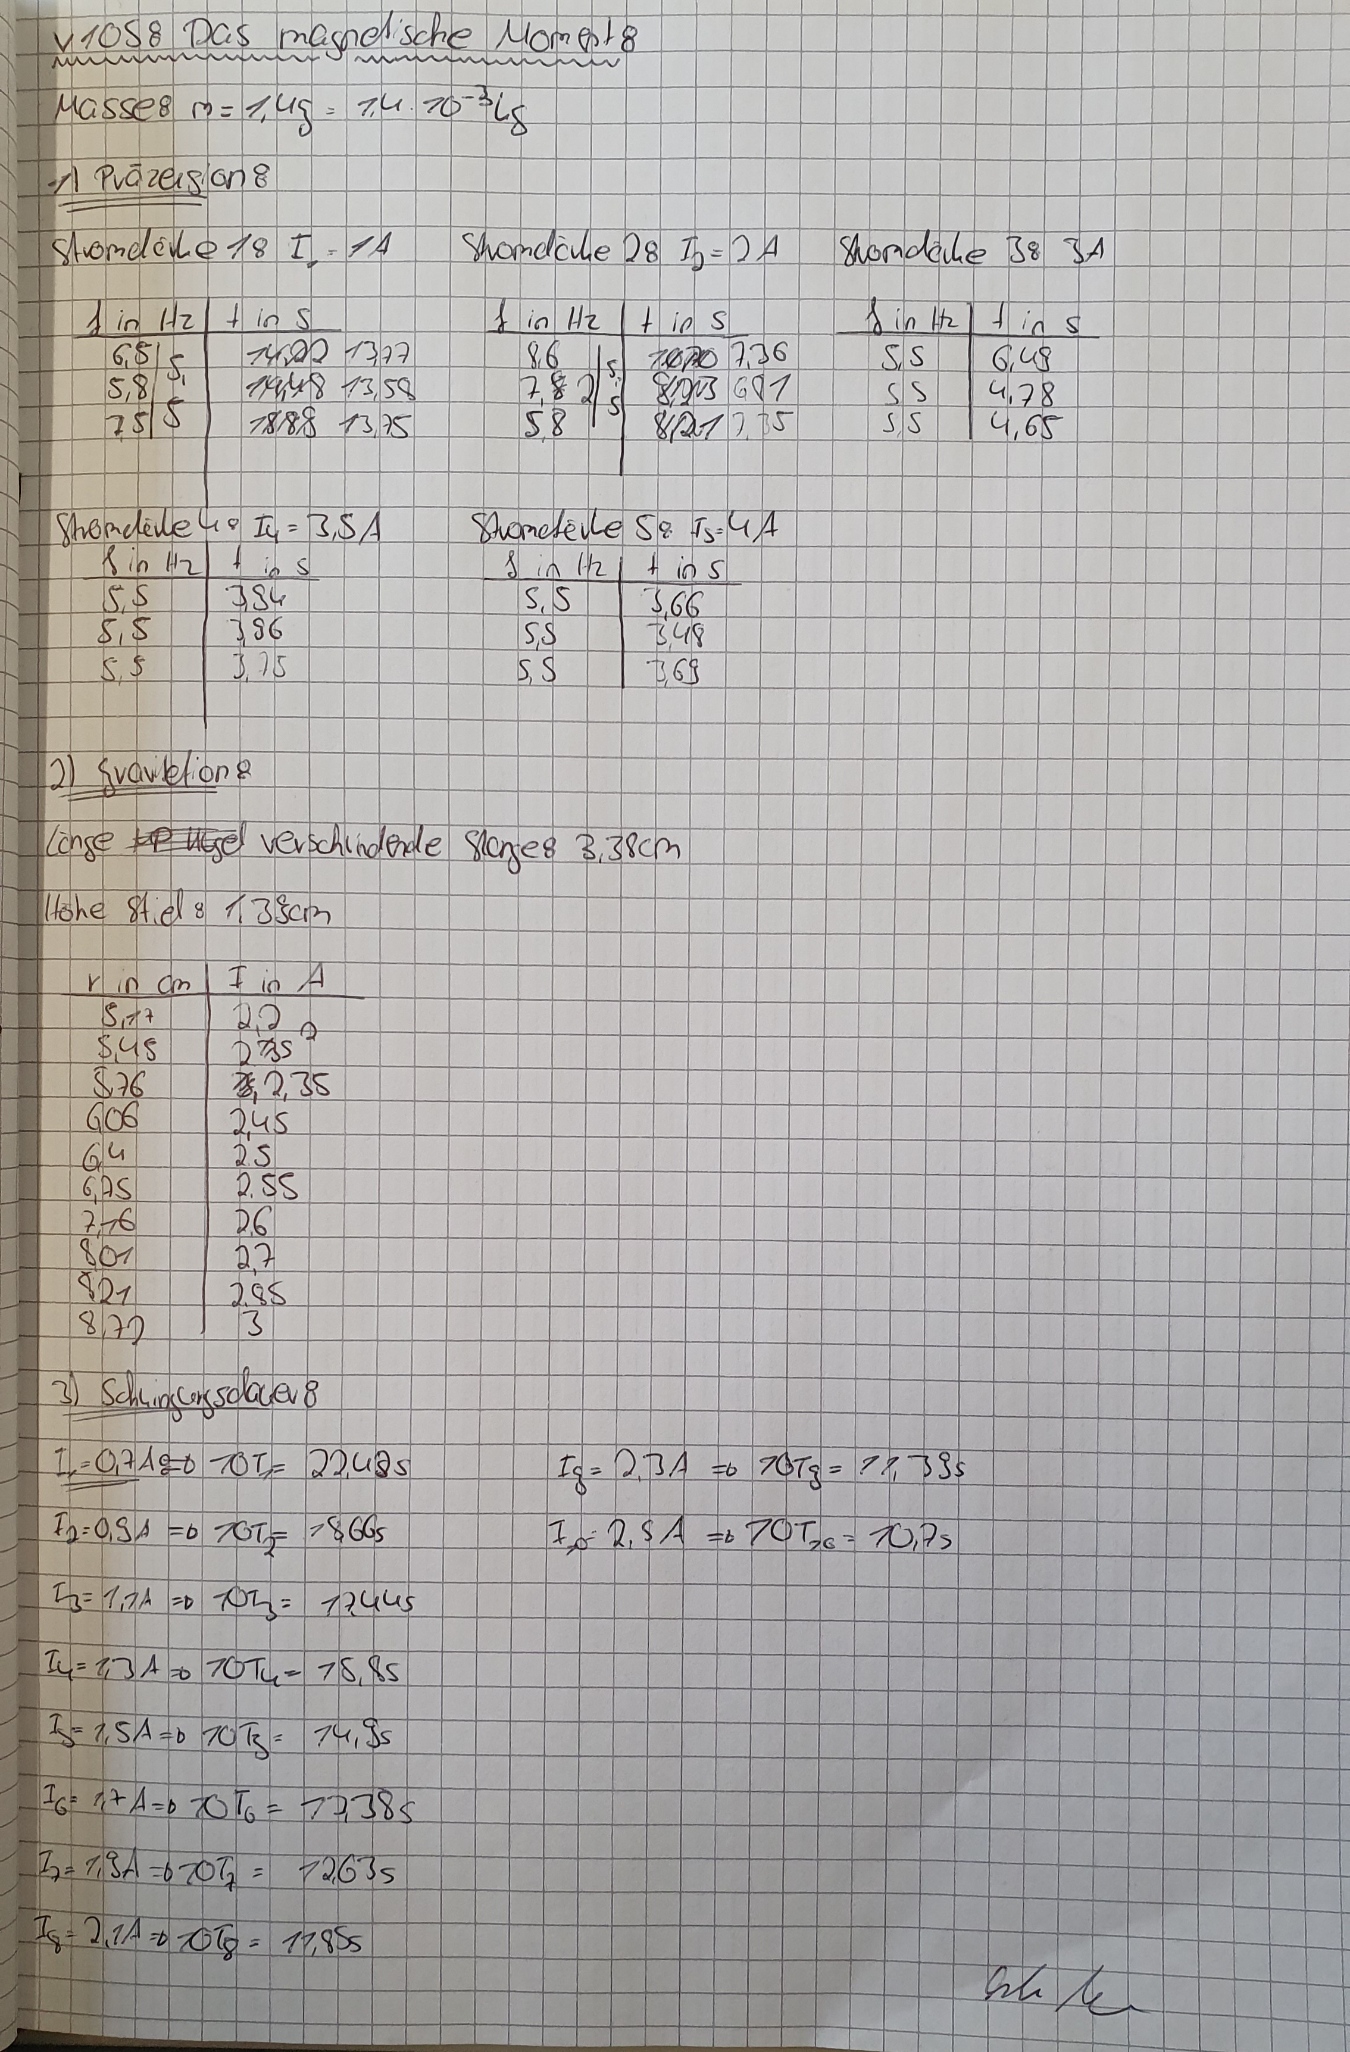 V105: Das magnetische Moment:
Masse: m = 1,4g = 1,4 · 10⁻³kg
1) Präzession:
Stromstärke 1: I₁ = 1A
f in Hz | t in s
6,5 5,5 | 13,77
5,8 | 13,59
7,5 | 13,75
Stromstärke 2: I₂ = 2A
f in Hz | t in s
8,6 5,5 | 7,36
7,8 | 6,91
5,8 | 7,35
Stromstärke 3: 3A
f in Hz | t in s
5,5 | 6,49
5,5 | 4,78
5,5 | 4,65
Stromstärke 4: I₄ = 3,5A
f in Hz | t in s
5,5 | 3,94
5,5 | 3,96
5,5 | 3,75
Stromstärke 5: I₅ = 4A
f in Hz | t in s
5,5 | 3,66
5,5 | 3,48
5,5 | 3,69
2) Gravitation:
Länge verschwindende Stange: 3,38cm
Höhe Stiel: 1,39cm
r in cm | I in A
5,17 | 2,2
5,45
5,76 | 2,35
6,06 | 2,45
6,4 | 2,5
6,75 | 2,55
7,16 | 2,6
8,01 | 2,7
8,21 | 2,85
8,72 | 3
3) Schwingungsdauer:
I₁ = 0,7A ⇒ 10T₁ = 22,48s
I₂ = 0,9A ⇒ 10T₂ = 18,66s
I₃ = 1,1A ⇒ 10T₃ = 17,44s
I₄ = 1,3A ⇒ 10T₄ = 15,8s
I₅ = 1,5A ⇒ 10T₅ = 14,9s
I₆ = 1,7A ⇒ 10T₆ = 13,38s
I₇ = 1,9A ⇒ 10T₇ = 12,63s
I₈ = 2,1A ⇒ 10T₈ = 11,85s
I₉ = 2,3A ⇒ 10T₉ = 11,39s
I₁₀ = 2,5A ⇒ 10T₁₀ = 10,7s